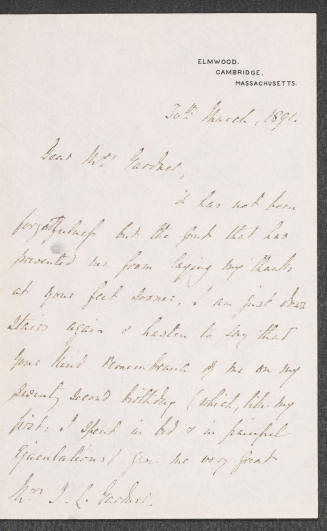 ELMWOOD.
CAMBRIDGE.
MASSACHUSETTS.
30th March, 1891.
Dear Mrs Gardner,
it has not been
forgetfulness but the gout that has
prevented me from laying my thanks
at your feet sooner. I am just down
stairs again & hasten to say that
your kind remembrance of me on my
seventy second birthday (which, like my
first, I spend in bed & in painful
ejaculations) gave me very great
Mrs J. L. Gardner.